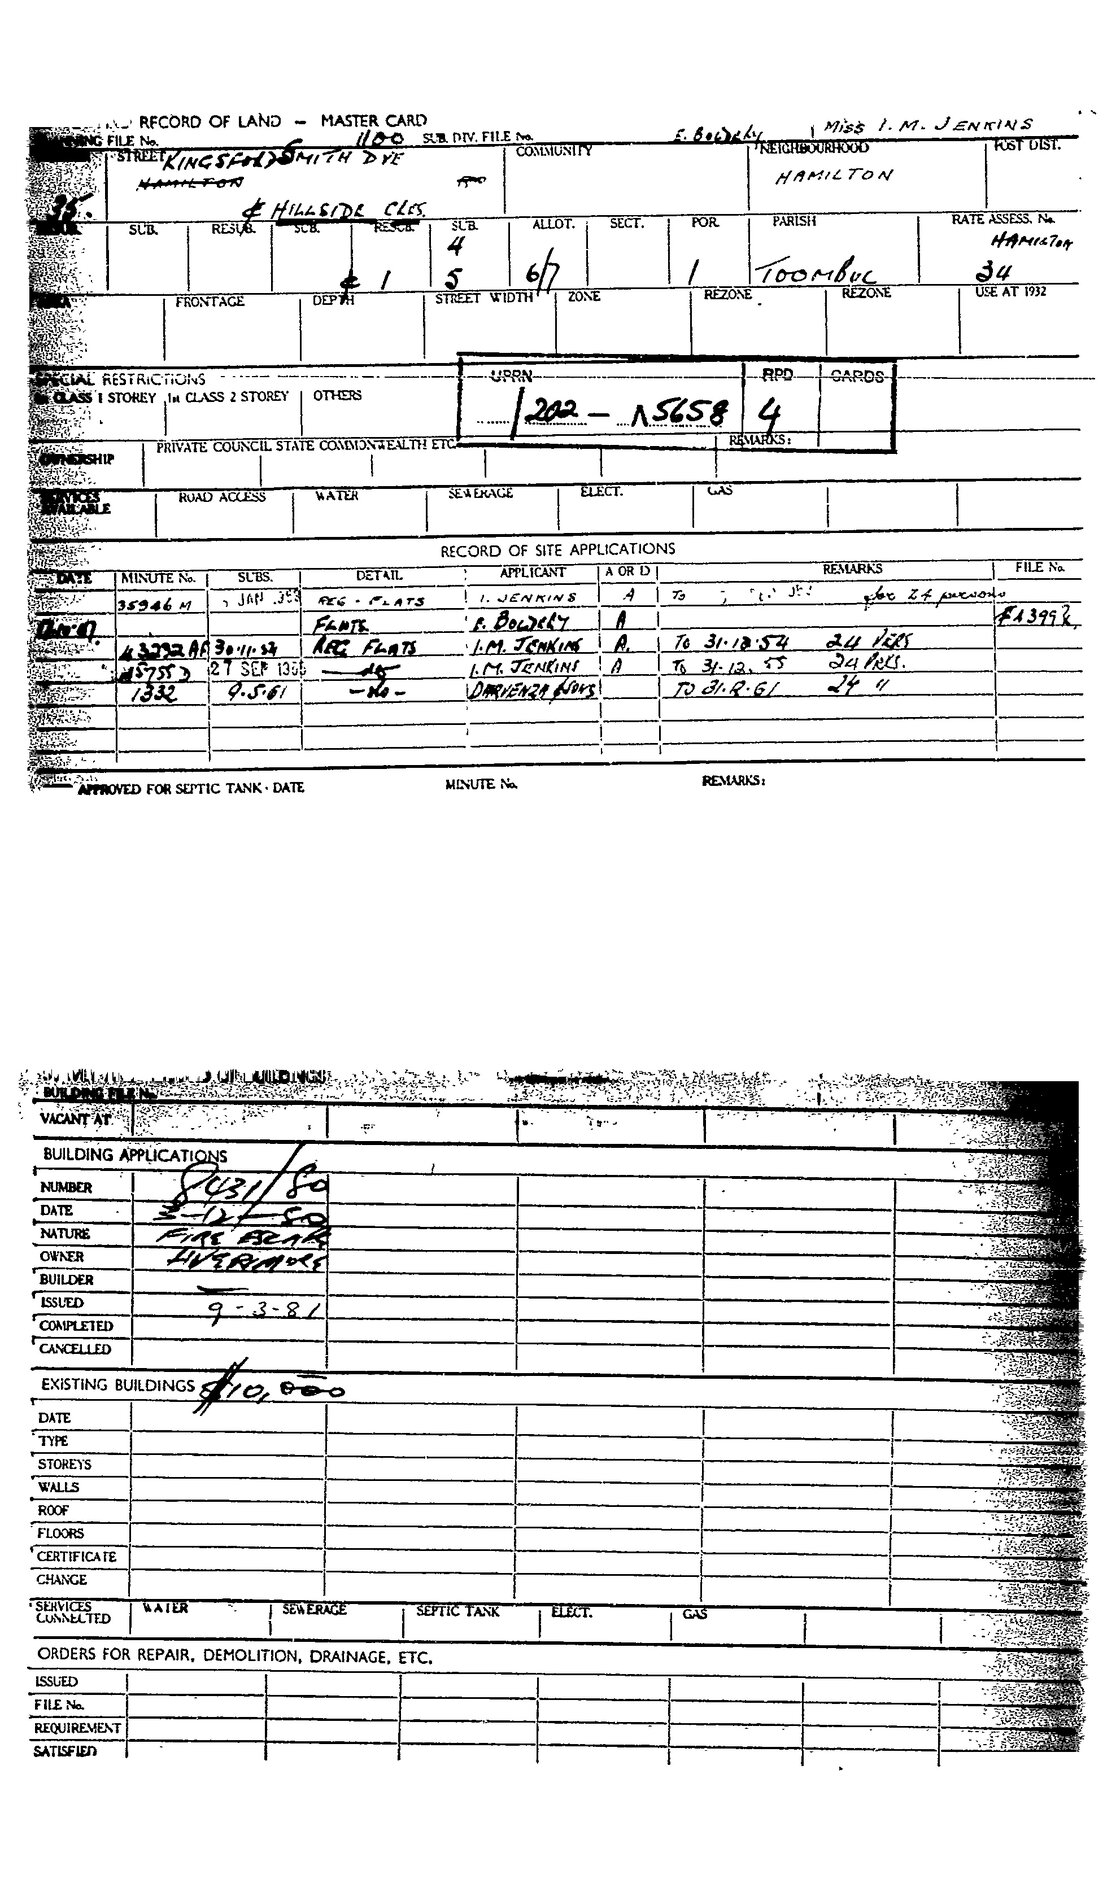 RECORD OF LAND – MASTER CARD
FILE No. 1100 SUB. DIV. FILE No. E. BOWDERY Miss I. M. JENKINS
STREET KINGSFORD SMITH DVE COMMUNITY NEIGHBOURHOOD POST DIST.
HAMILTON HAMILTON
35. & HILLSIDE CRES.
SUB. RESUB. SUB. RESUB. SUB. ALLOT. SECT. POR. PARISH RATE ASSESS. No.
4 HAMILTON
& 1 5 6/7 1 TOOMBUL 34
AREA FRONTAGE DEPTH STREET WIDTH ZONE REZONE REZONE USE AT 1932
SPECIAL RESTRICTIONS UPRN RPD CARDS
1st CLASS 1 STOREY 1st CLASS 2 STOREY OTHERS
/202 – 15658 4
OWNERSHIP PRIVATE COUNCIL STATE COMMONWEALTH ETC. REMARKS:
SERVICES AVAILABLE ROAD ACCESS WATER SEWERAGE ELECT. GAS
RECORD OF SITE APPLICATIONS
DATE MINUTE No. SUBS. DETAIL APPLICANT A OR D REMARKS FILE No.
35946 M JAN REG - FLATS I. JENKINS A To for 24 persons
FLATS E. BOWDERY A
30.11.54 REG FLATS I.M. JENKINS A. To 31.12.54 24 PERS
27 SEP I.M. JENKINS A To 31.12.55 24 PRS.
1332 9.5.61 - do - To 31.8.61 24 "
APPROVED FOR SEPTIC TANK - DATE MINUTE No. REMARKS:
BUILDING FILE No.
VACANT AT
BUILDING APPLICATIONS
NUMBER 8431/80
DATE -12-80
NATURE FIRE ESCAPE
OWNER LIVERMORE
BUILDER —
ISSUED 9-3-81
COMPLETED
CANCELLED
EXISTING BUILDINGS $10,000
DATE
TYPE
STOREYS
WALLS
ROOF
FLOORS
CERTIFICATE
CHANGE
SERVICES CONNECTED WATER SEWERAGE SEPTIC TANK ELECT. GAS
ORDERS FOR REPAIR, DEMOLITION, DRAINAGE, ETC.
ISSUED
FILE No.
REQUIREMENT
SATISFIED